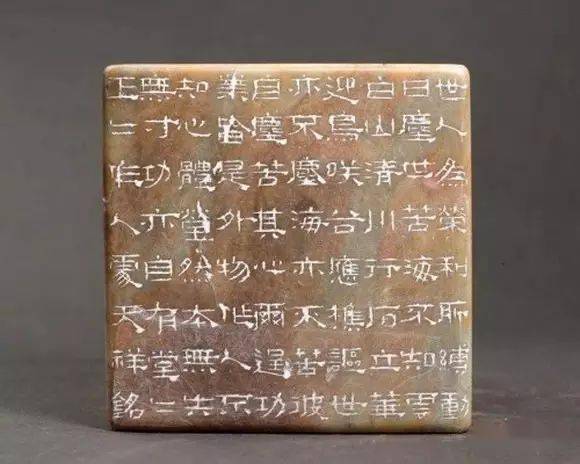 世人為榮利所縛動
曰塵世苦海不知雲
白山清川行石立華
迎鳥咲谷應樵謳世
亦不塵海亦不苦彼
自塵苦其心爾逞功
業皆是外物作人不
知心體瑩然本無失
無寸功亦自有堂二
正二作人處天祥銘